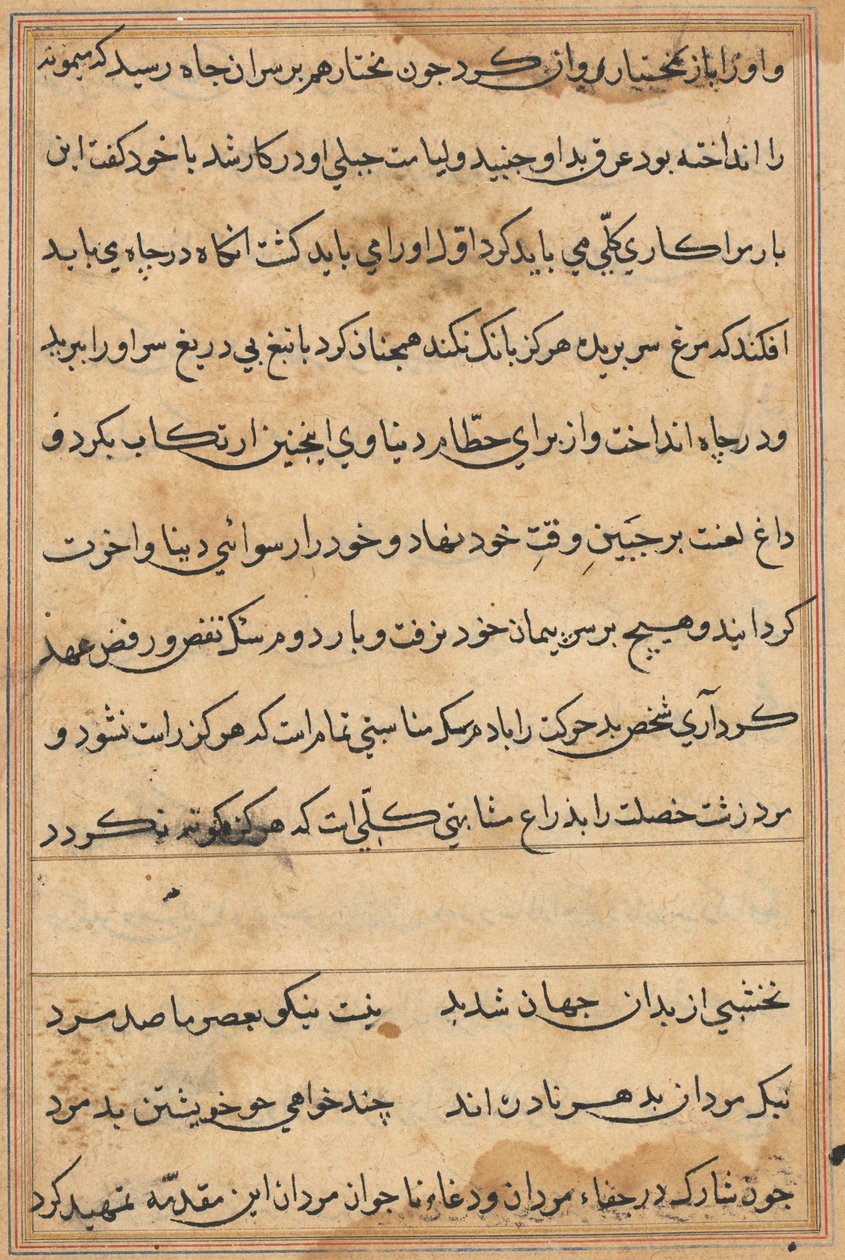 و او را باز بختیار روان کرد جون بختار هم بر سر ان جاه رسید که میمونه
را انداخته بود عرق بد او جنبید و لیامت جبلی او در کار شد با خود کفت این
بار مرا کاری کلّی می باید کرد اوّل او را می باید کشت انکاه در چاه می باید
افکند که مرغ سر بریده هرکز بانک نکند همجنان کرد با تیغ بی دریغ سر او را ببرید
و در چاه انداخت و از برای حطّام دنیاوی اینجنین ارتکاب بکرد و
داغ لعنت بر جَبَینِ وقتِ خود نهاد و خود را رسوائی دنیا و اخرت
کردانید و هیچ بر سر پیمان خود نرفت و بار دوم سک نقض و رفض عهد
کرد آری شخص بد حرکت را با دم سک مناسبتی تمام است که هرکز راست نشود و
مرد زشت خصلت را بذراع مشابهتی کلّی است که هرکز نکونه نکردد
نخشبی از بدان جهان شد بد نیست نیکو بعصر ما صد مرد
نیک مردان بدهر نادره اند چند خواهی جو خویشتن بد مرد
جون شارک در جفاء مردان و دغاء نا جوان مردان این مقدّمه تمهید کرد